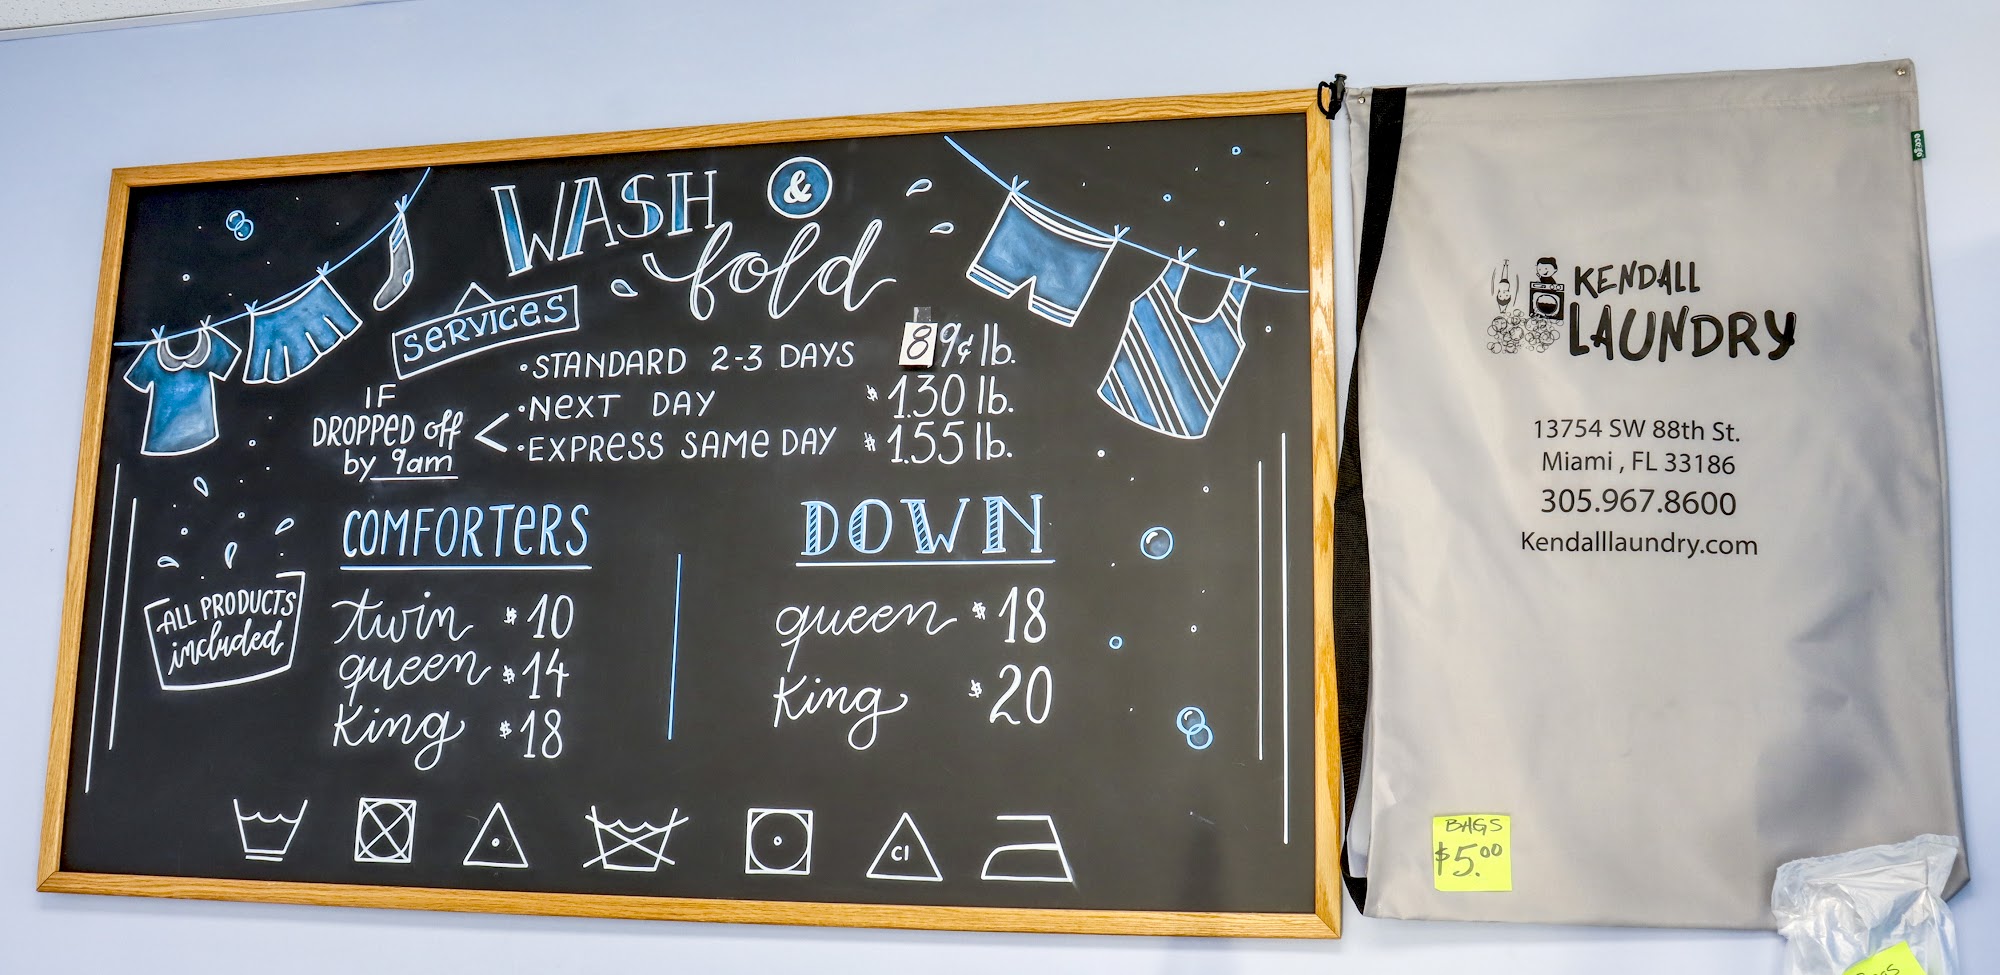 WASH &
fold
SERVICES
• STANDARD 2-3 DAYS 89¢ lb.
IF DROPPED off by 9am
• NEXT DAY $1.30 lb.
• EXPRESS SAME DAY $1.55 lb.
ALL PRODUCTS
included
COMFORTERS
twin $10
queen $14
King $18
DOWN
queen $18
King $20
Cl
KENDALL
LAUNDRY
13754 SW 88th St.
Miami , FL 33186
305.967.8600
Kendalllaundry.com
BAGS
$5.00